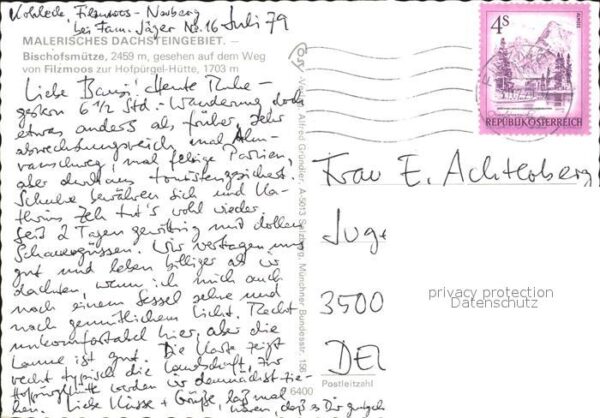 Filzmoos - Neuberg
bei Fam. Jäger Nr. 16 Juli 79
MALERISCHES DACHSTEINGEBIET. –
Bischofsmütze, 2459 m, gesehen auf dem Weg
von Filzmoos zur Hofpürgel-Hütte, 1703 m
Liebe Heute Ruhe –
gestern 6 1/2 Std. - Wanderung, doch
etwas anders als früher, sehr
abwechslungsreich, mal Alm-
mal felsige Partien,
aber durchaus touristengesichert.
Schuhe bewähren sich und Ka-
thrins Zeh tut's wohl wieder.
Seit 2 Tagen gewittrig mit dollen
Schauergüssen. Wir vertragen uns
gut und leben billiger als wir
dachten, wenn ich mich auch
nach einem Sessel sehne und
nach gemütlichem Licht. Recht
unkomfortabel hier, aber die
Laune ist gut. Die Karte zeigt
recht typisch die Landschaft, zur
Hofpürglhütte werden wir demnächst zie-
hen. Liebe Küsse + Grüße, laß mal
hören, daß es Dir gutgeht
Verlag Alfred Gründler, A-5013 Salzburg, Münchner Bundesstr. 156
6400
4S
REPUBLIK ÖSTERREICH
Frau E. Achterberg
Jug
3500
privacy protection
Datenschutz
DEU
Postleitzahl